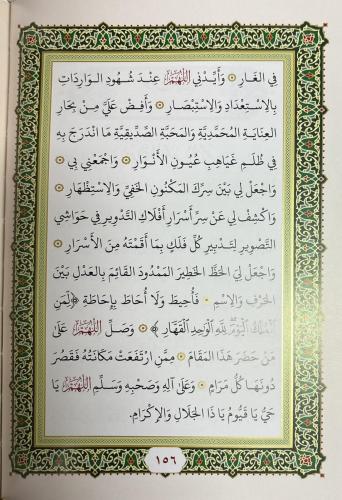 فِي الْغَارِ ۞ وَأَيِّدْنِي اللَّهُمَّ عِنْدَ شُهُودِ الْوَارِدَاتِ
بِالِاسْتِعْدَادِ وَالِاسْتِبْصَارِ ۞ وَأَفِضْ عَلَيَّ مِنْ بِحَارِ
الْعِنَايَةِ الْمُحَمَّدِيَّةِ وَالْمَحَبَّةِ الصِّدِّيقِيَّةِ مَا انْدَرَجَ بِهِ
فِي ظُلَمِ غَيَاهِبِ عُيُونِ الْأَنْوَارِ ۞ وَاجْمَعْنِي بِي ۞
وَاجْعَلْ لِي بَيْنَ سِرِّكَ الْمَكْنُونِ الْخَفِيِّ وَالِاسْتِظْهَارِ ۞
وَاكْشِفْ لِي عَنْ سِرِّ أَسْرَارِ أَفْلَاكِ التَّدْوِيرِ فِي حَوَاشِي
التَّصْوِيرِ لِتَدْبِيرِ كُلِّ فَلَكٍ بِمَا أَقَمْتَهُ مِنَ الْأَسْرَارِ ۞
وَاجْعَلْ لِيَ الْحَظَّ الْخَطِيرَ الْمَمْدُودَ الْقَائِمَ بِالْعَدْلِ بَيْنَ
الْحَرْفِ وَالِاسْمِ ۞ فَأُحِيطَ وَلَا أُحَاطَ بِإِحَاطَةِ ﴿لِمَنِ
الْمُلْكُ الْيَوْمَ لِلَّهِ الْوَاحِدِ الْقَهَّارِ﴾ ۞ وَصَلِّ اللَّهُمَّ عَلَى
مَنْ حَضَرَ هَذَا الْمَقَامَ ۞ مِمَّنِ ارْتَفَعَتْ مَكَانَتُهُ فَقَصُرَ
دُونَهَا كُلُّ مَرَامٍ ۞ وَعَلَى آلِهِ وَصَحْبِهِ وَسَلِّمِ اللَّهُمَّ يَا
حَيُّ يَا قَيُّومُ يَا ذَا الْجَلَالِ وَالْإِكْرَامِ.
١٥٦